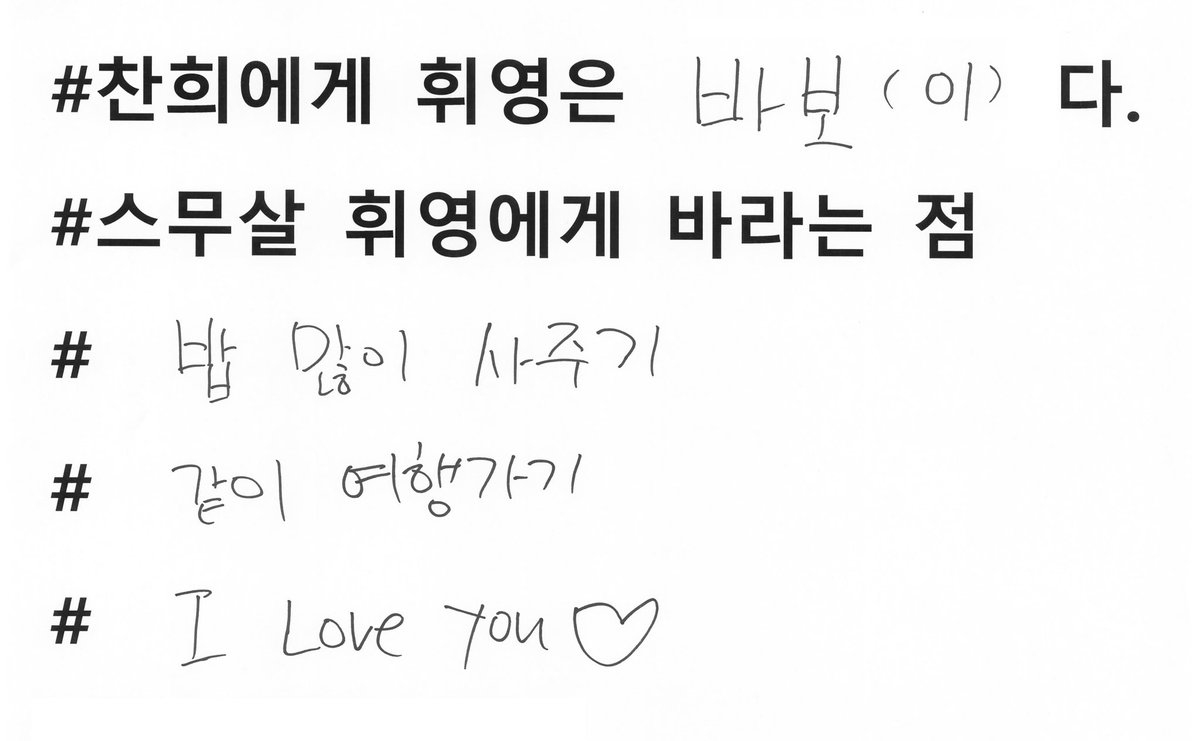 #찬희에게 휘영은 바보 (이) 다.
#스무살 휘영에게 바라는 점
# 밥 많이 사주기
# 같이 여행가기
# I Love you♡